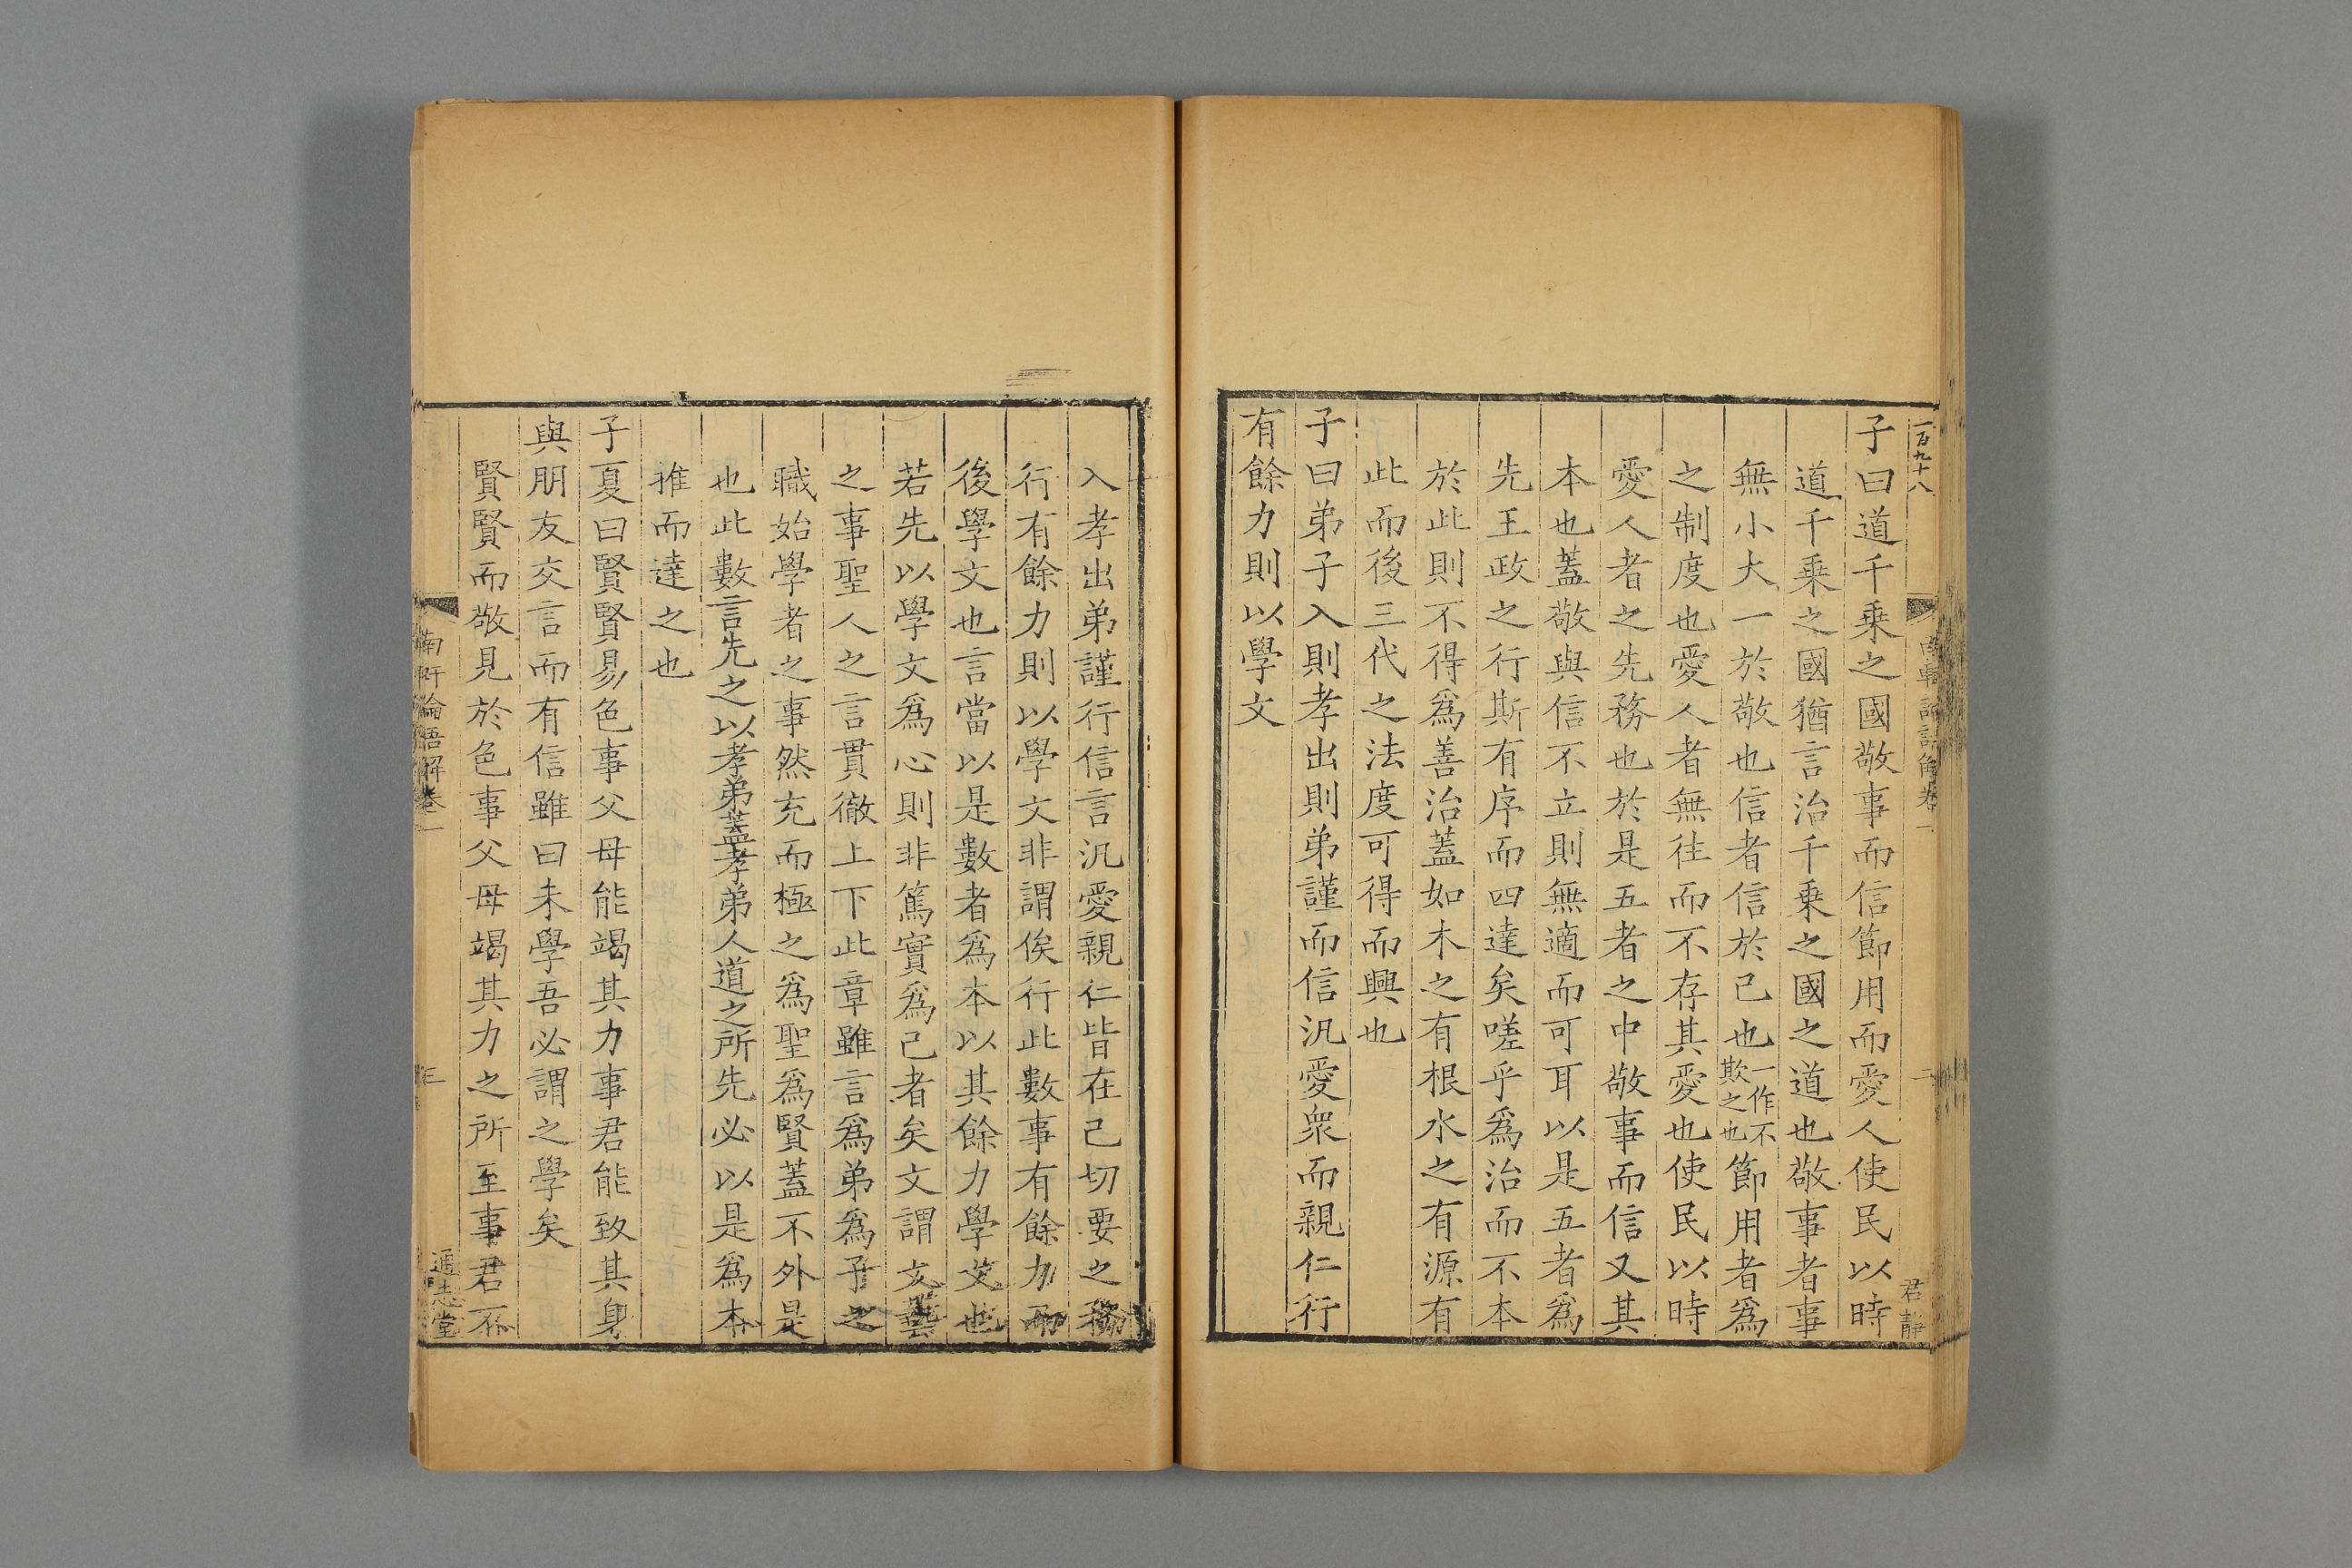 一百九十八
南軒論語解卷一
二
君靜
子曰道千乗之國敬事而信節用而愛人使民以時
道千乗之國猶言治千乗之國之道也敬事者事
無小大一於敬也信者信於己也一作不欺之也節用者爲
之制度也愛人者無往而不存其愛也使民以時
愛人者之先務也於是五者之中敬事而信又其
本也蓋敬與信不立則無適而可耳以是五者爲
先王政之行斯有序而四達矣嗟乎爲治而不本
於此則不得爲善治蓋如木之有根水之有源有
此而後三代之法度可得而興也
子曰弟子入則孝出則弟謹而信汎愛衆而親仁行
有餘力則以學文
入孝出弟謹行信言汎愛親仁皆在己切要之務
行有餘力則以學文非謂俟行此數事有餘力而
後學文也言當以是數者爲本以其餘力學文也
若先以學文爲心則非篤實爲己者矣文謂文藝
之事聖人之言貫徹上下此章雖言爲弟爲子之
職始學者之事然充而極之爲聖爲賢蓋不外是
也此數言先之以孝弟蓋孝弟人道之所先必以是爲本
推而達之也
子夏曰賢賢易色事父母能竭其力事君能致其身
與朋友交言而有信雖曰未學吾必謂之學矣
賢賢而敬見於色事父母竭其力之所至事君不
南軒論語解卷一
三
通志堂